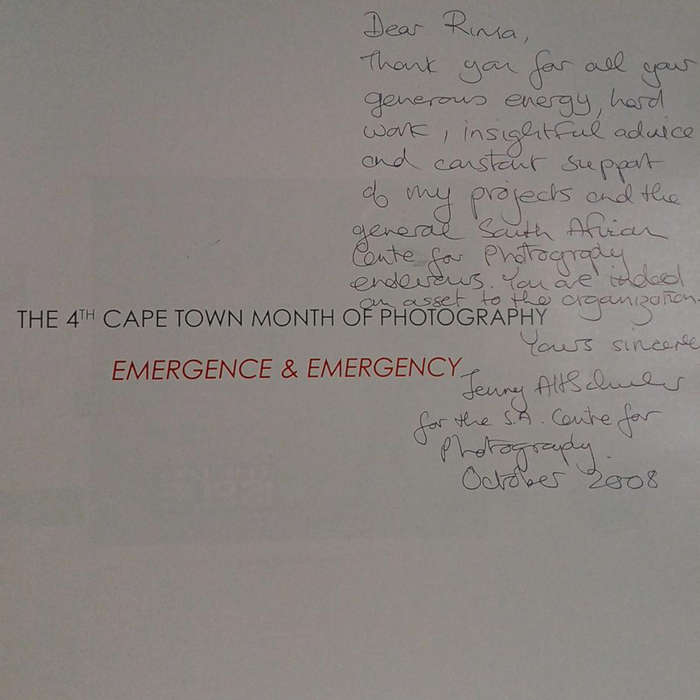 Dear Rima,
Thank you for all your
generous energy, hard
work, insightful advice
and constant support
of my projects and the
general South African
Centre for Photography
endevours. You are indeed
an asset to the organization.
THE 4TH CAPE TOWN MONTH OF PHOTOGRAPHY
Yours sincerely
EMERGENCE & EMERGENCY
Jenny Altschuler
for the S.A. Centre for
Photography.
October 2008